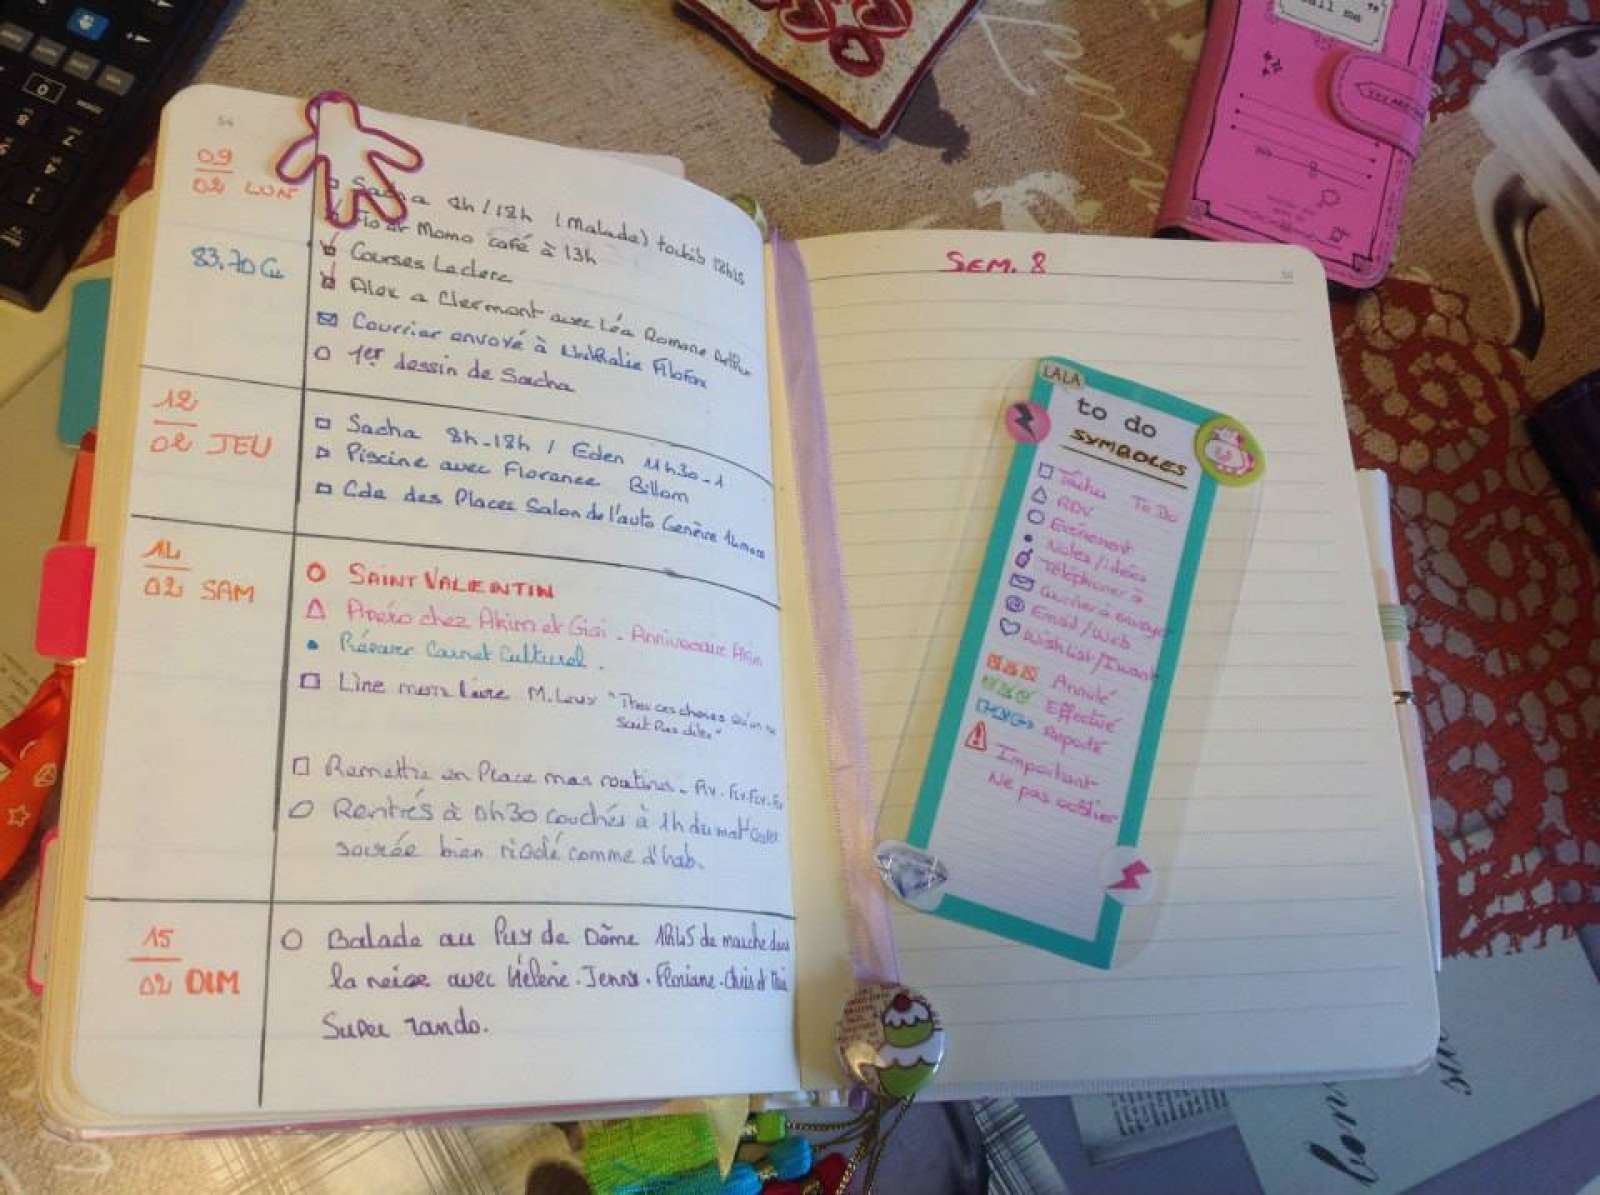 54
09
02 LUN
Sacha 8h / 18h (Malade) toubib 12h15
Flo et Momo café à 13h
83,70 Cu
Courses Leclerc
Alex a Clermont avec Léa Romane
Courrier envoyé à Nathalie Filofax
1er dessin de Sacha
12
02 JEU
Sacha 8h-18h / Eden 11h30-1
Piscine avec Florance Billom
Cde des Places Salon de l'auto Genève 14 mars
14
02 SAM
SAINT VALENTIN
Apéro chez Akim et Gigi - Anniversaire Akim
Préparer Carnet Culturel.
Lire mon livre M. Levy "Toutes ces choses qu'on ne
sait pas dites"
Remettre en Place mes routines - Fly - Fly - Fly
Rentrés à 0h30 couchés à 1h du mat
soirée bien rigolé comme d'hab.
15
02 DIM
Balade au Puy de Dôme 1h45 de marche dans
la neige avec Hélène. Jenny. Floriane. Chris et
Super rando.
SEM. 8
LALA
to do
SYMBOLES
Tâches To Do
RDV
Evénement
Notes / idées
Téléphoner à
Courrier à envoyer
Email / web
Wishlist / I want
Annulé
Effectué
Reporté
Important
Ne pas oublier
call me